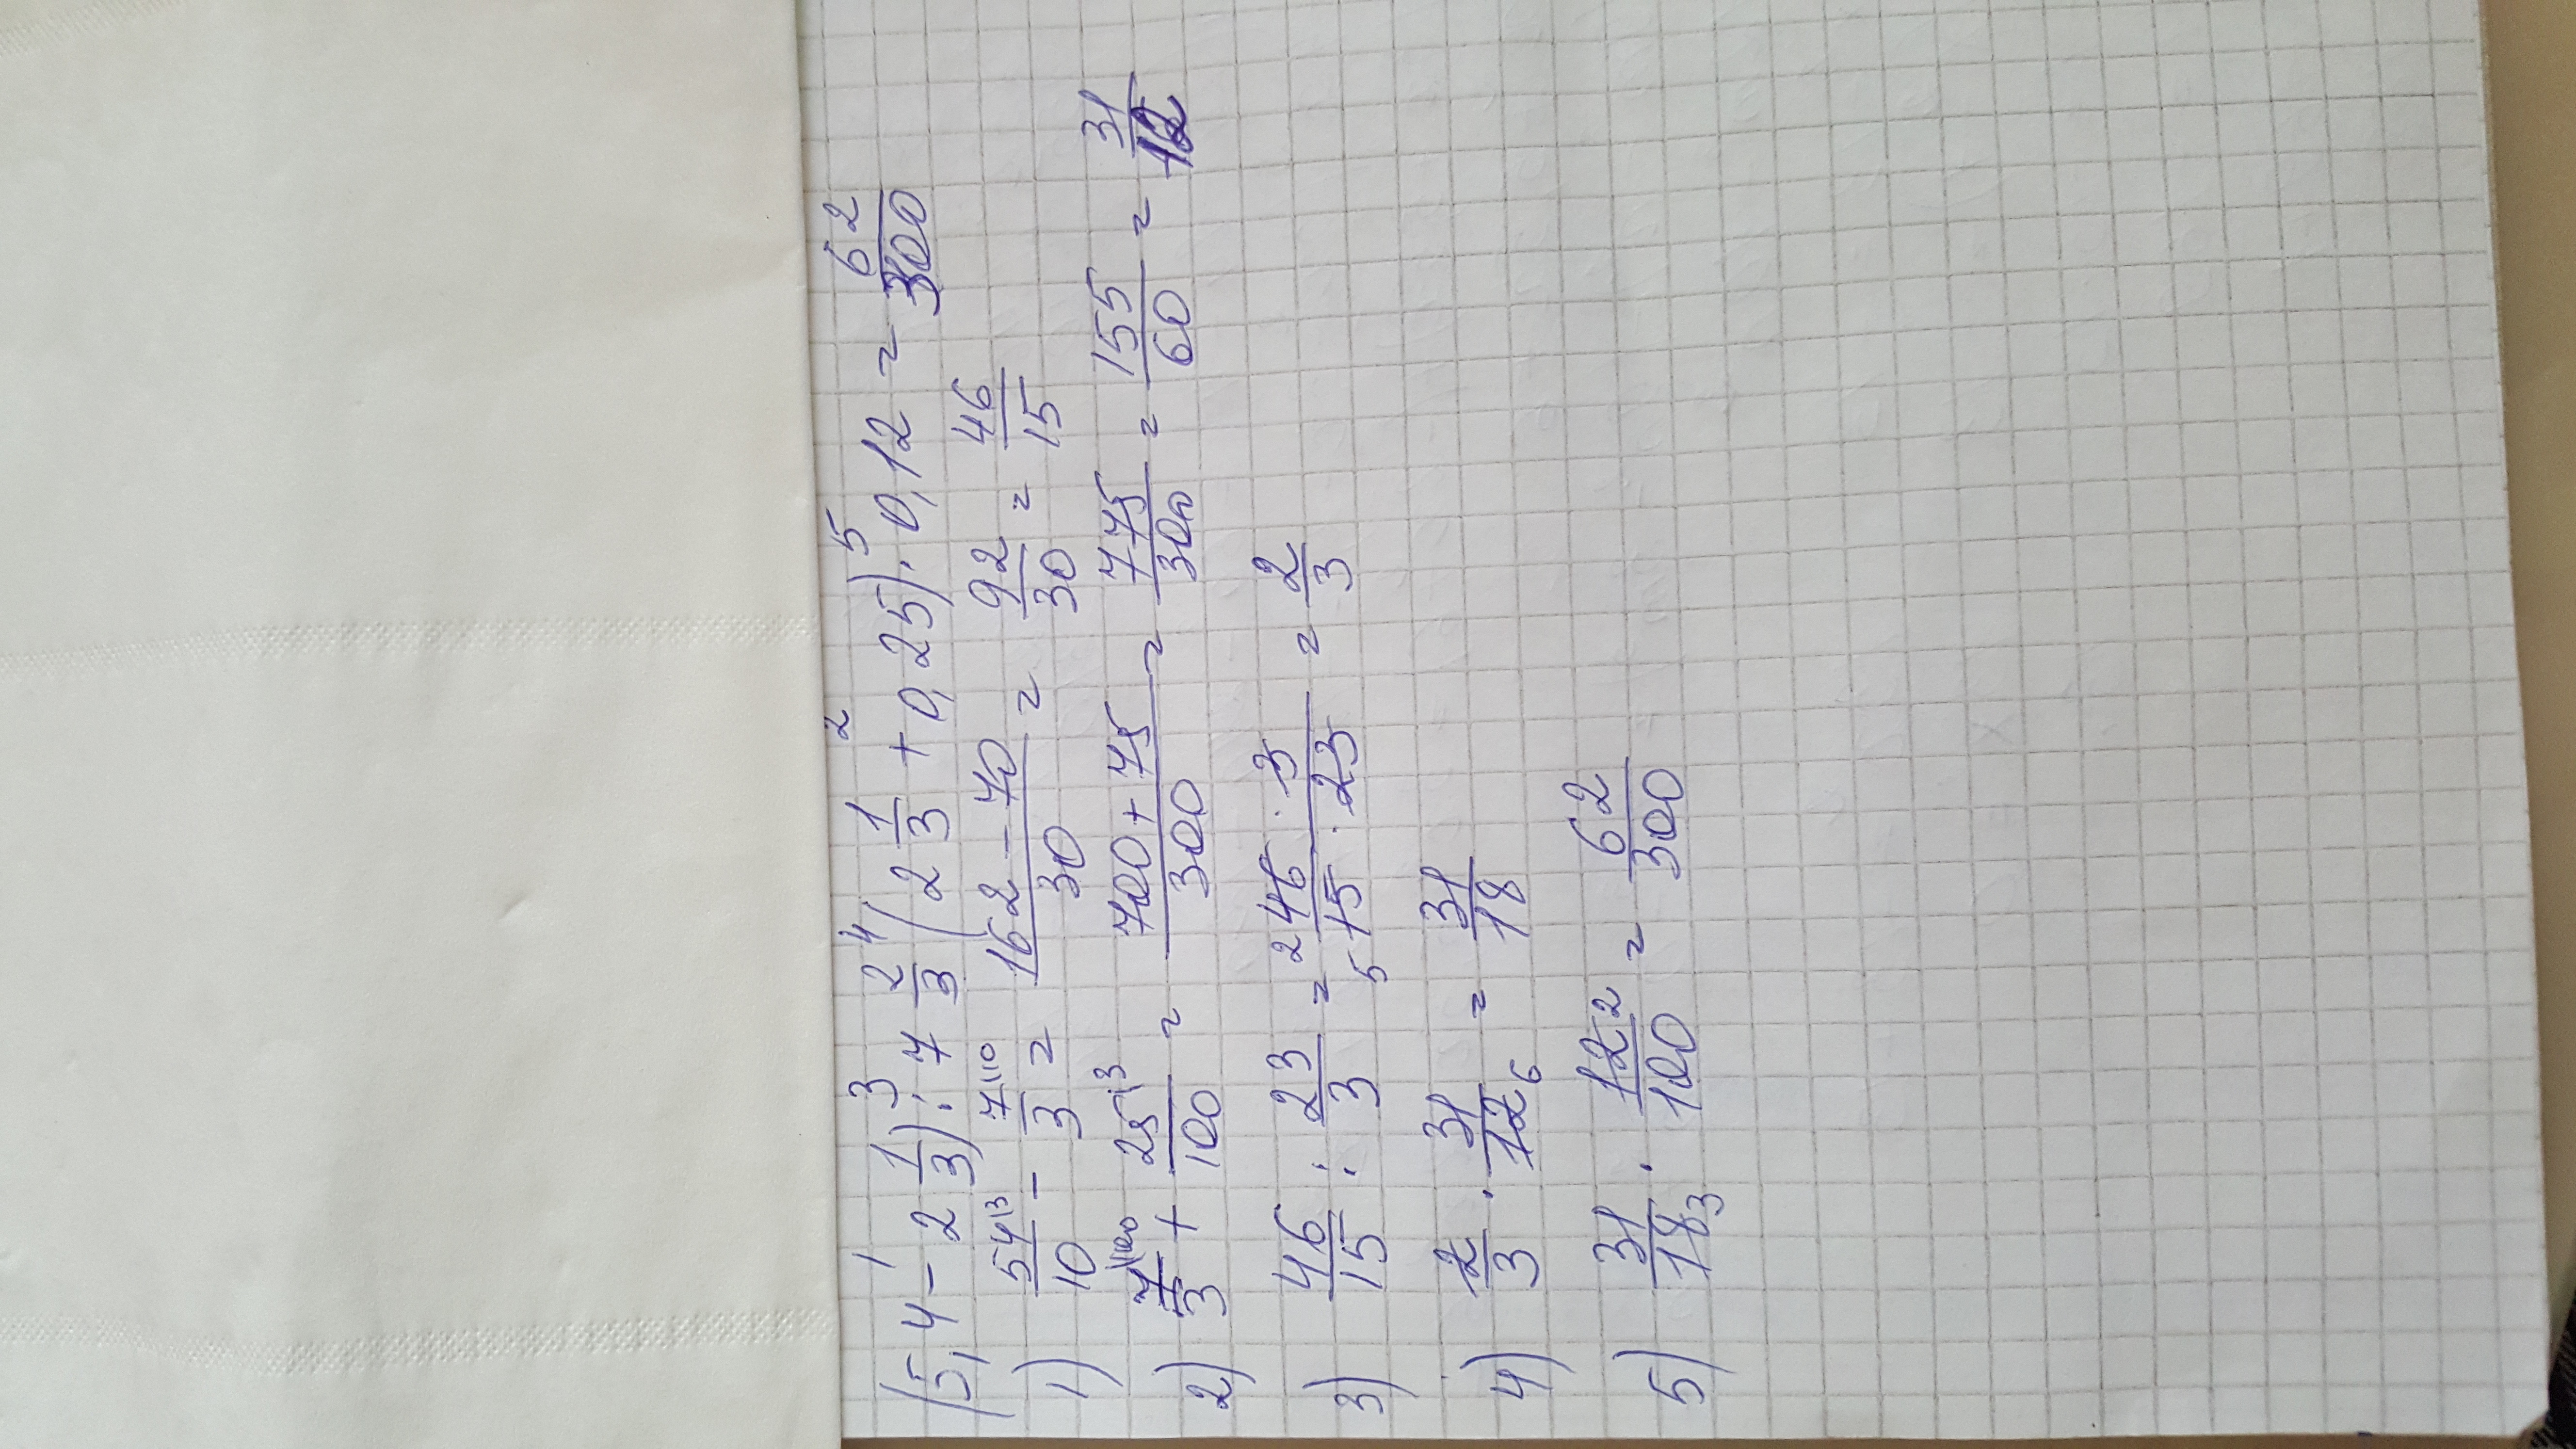 (5,4 - 2 1/3) : 7 2/3 (2 1/3 + 0,25) · 0,12 = 62/300
1) 54/10 - 7/3 = (162 - 70)/30 = 92/30 = 46/15
2) 7/3 + 25/100 = (700 + 75)/300 = 775/300 = 155/60 = 31/12
3) 46/15 : 23/3 = (46 · 3)/(15 · 23) = 2/3
4) 2/3 · 31/12 = 31/18
5) 31/18 · 12/100 = 62/300